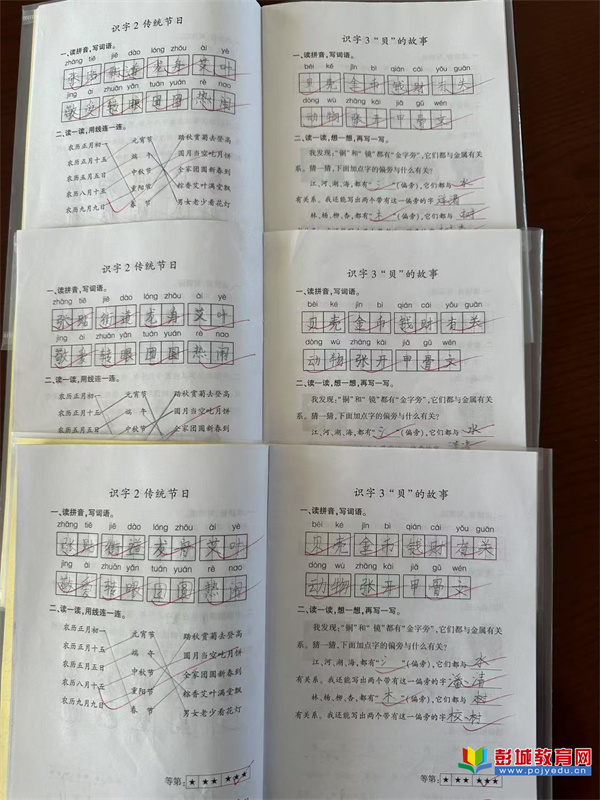 识字2 传统节日
一、读拼音,写词语。
zhāng tiē jiē dào lóng zhōu ài yè
张贴 街道 龙舟 艾叶
jìng ài zhuǎn yǎn tuán yuán rè nao
敬爱 转眼 团圆 热闹
二、读一读,用线连一连。
农历正月初一 元宵节 踏秋赏菊去登高
农历正月十五 端 午 圆月当空吃月饼
农历五月五日 中秋节 全家团圆新春到
农历八月十五 重阳节 粽香艾叶满堂飘
农历九月九日 春 节 男女老少看花灯
识字3 “贝”的故事
一、读拼音,写词语。
bèi ké jīn bì qián cái yǒu guān
贝壳 金币 钱财 有关
dòng wù zhāng kāi jiǎ gǔ wén
动物 张开 甲骨文
二、读一读,想一想,再写一写。
我发现:“铜”和“镜”都有“金字旁”,它们都与金属有关
系。猜一猜,下面加点字的偏旁与什么有关?
江、河、湖、海,都有“氵”(偏旁),它们都与 水
有关系。我还能写出两个带有这一偏旁的字
林、杨、柳、杏,都有“木”(偏旁),它们都与 树
识字2 传统节日
一、读拼音,写词语。
zhāng tiē jiē dào lóng zhōu ài yè
张贴 街道 龙舟 艾叶
jìng ài zhuǎn yǎn tuán yuán rè nao
敬爱 转眼 团圆 热闹
二、读一读,用线连一连。
农历正月初一 元宵节 踏秋赏菊去登高
农历正月十五 端 午 圆月当空吃月饼
农历五月五日 中秋节 全家团圆新春到
识字3 “贝”的故事
一、读拼音,写词语。
bèi ké jīn bì qián cái yǒu guān
贝壳 金币 钱财 有关
dòng wù zhāng kāi jiǎ gǔ wén
动物 张开 甲骨文
二、读一读,想一想,再写一写。
我发现:“铜”和“镜”都有“金字旁”,它们都与金属有关
系。猜一猜,下面加点字的偏旁与什么有关?
江、河、湖、海,都有“氵”(偏旁),它们都与 水
识字2 传统节日
一、读拼音,写词语。
zhāng tiē jiē dào lóng zhōu ài yè
张贴 街道 龙舟 艾叶
jìng ài zhuǎn yǎn tuán yuán rè nao
敬爱 转眼 团圆 热闹
二、读一读,用线连一连。
农历正月初一 元宵节 踏秋赏菊去登高
农历正月十五 端 午 圆月当空吃月饼
农历五月五日 中秋节 全家团圆新春到
农历八月十五 重阳节 粽香艾叶满堂飘
农历九月九日 春 节 男女老少看花灯
识字3 “贝”的故事
一、读拼音,写词语。
bèi ké jīn bì qián cái yǒu guān
贝壳 金币 钱财 有关
dòng wù zhāng kāi jiǎ gǔ wén
动物 张开 甲骨文
二、读一读,想一想,再写一写。
我发现:“铜”和“镜”都有“金字旁”,它们都与金属有关
系。猜一猜,下面加点字的偏旁与什么有关?
江、河、湖、海,都有“氵”(偏旁),它们都与 水
有关系。我还能写出两个带有这一偏旁的字 潘、清
林、杨、柳、杏,都有“木”(偏旁),它们都与 树
有关系。我还能写出两个带有这一偏旁的字 校、村
等第: ★ ★★ ★★★
彭城教育网
www.pcjyedu.cn